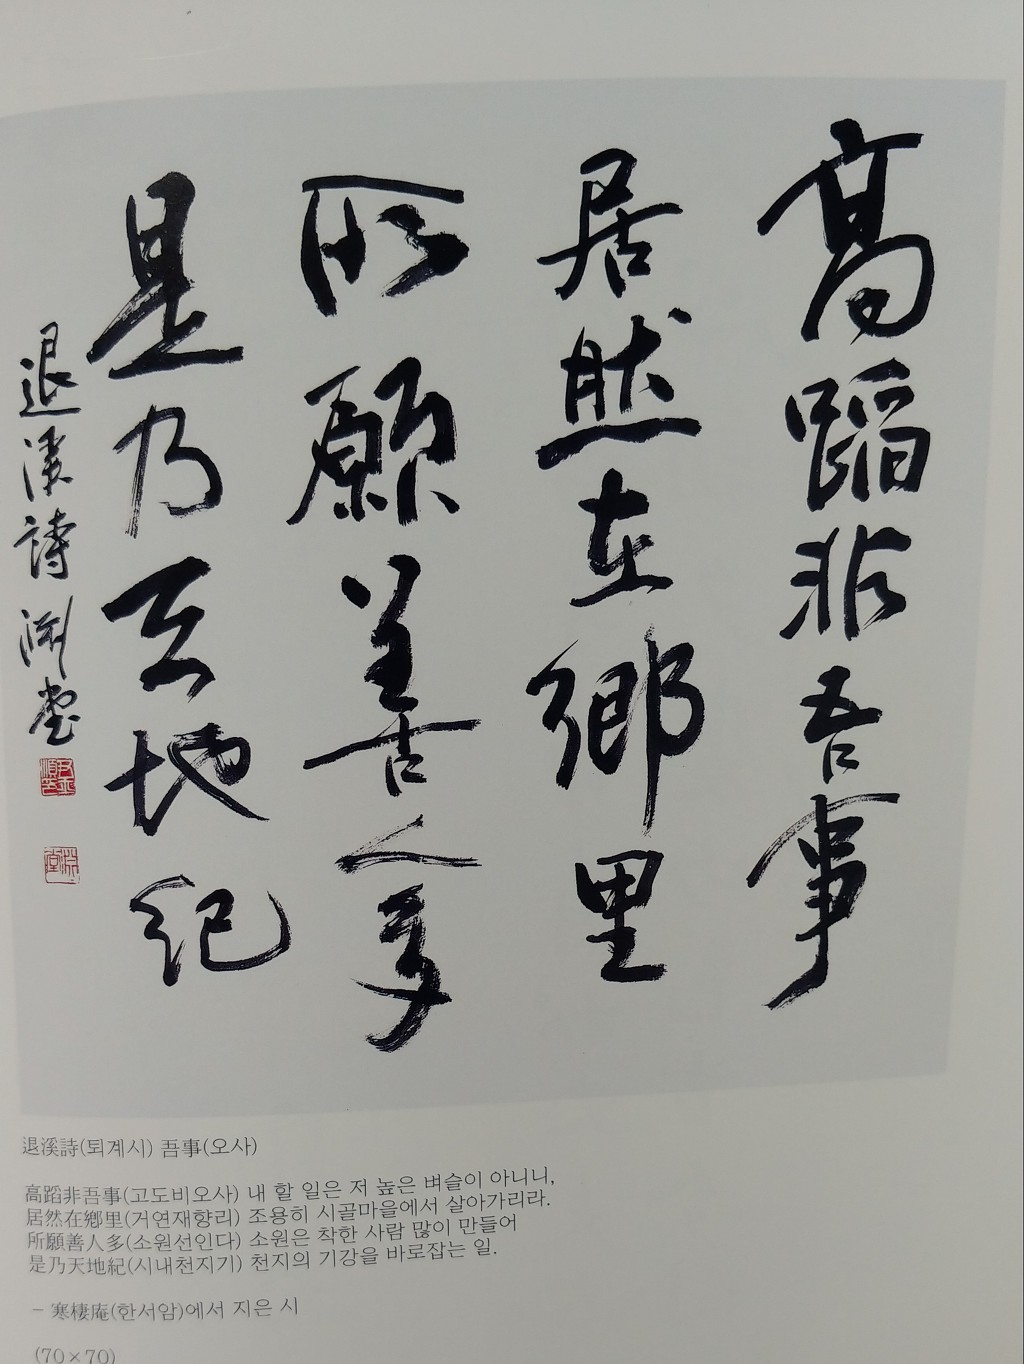 高蹈非吾事
居然在鄉里
所願善人多
是乃天地紀
退溪詩 淵堂
退溪詩(퇴계시) 吾事(오사)
高蹈非吾事(고도비오사) 내 할 일은 저 높은 벼슬이 아니니,
居然在鄕里(거연재향리) 조용히 시골마을에서 살아가리라.
所願善人多(소원선인다) 소원은 착한 사람 많이 만들어
是乃天地紀(시내천지기) 천지의 기강을 바로잡는 일.
- 寒棲庵(한서암)에서 지은 시
(70×70)